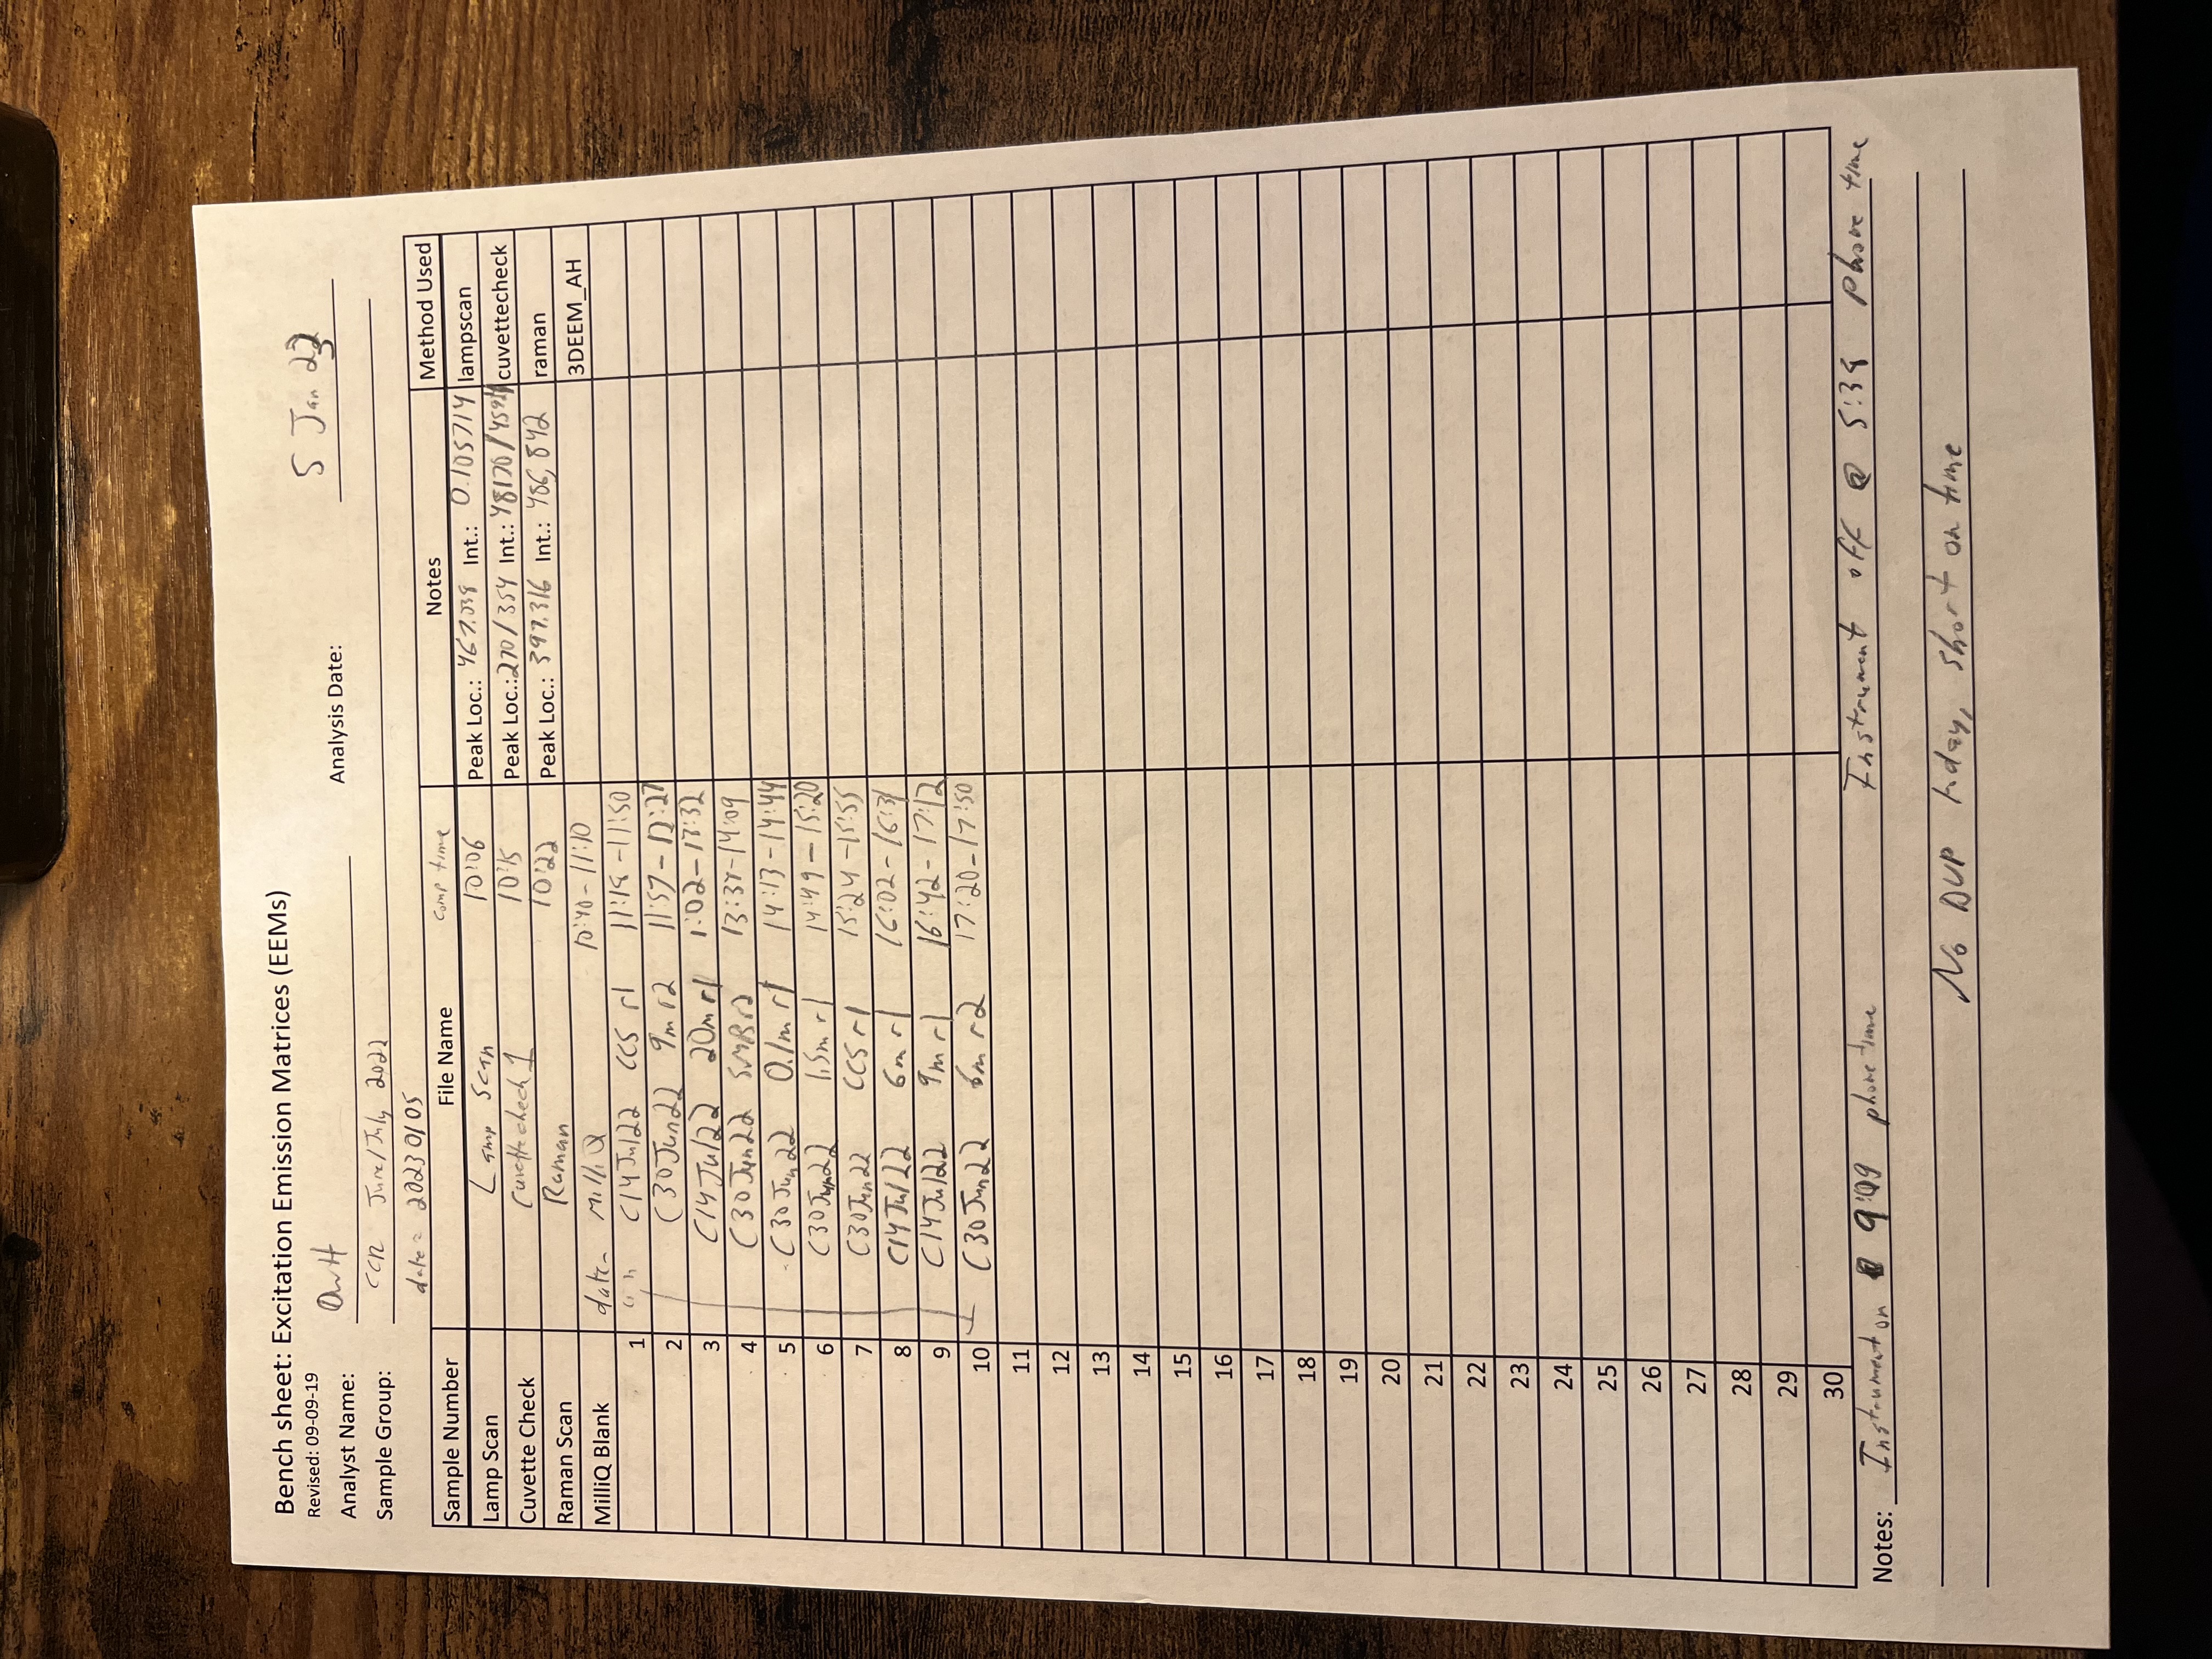 Bench sheet: Excitation Emission Matrices (EEMs)
Revised: 09-09-19
Analyst Name: Analysis Date: 5 Jan 23
Sample Group: CCR June/July 2022
date = 20230105
Sample Number File Name Comp time Notes Method Used
Lamp Scan Lamp Scan 10:06 Peak Loc.: 467.038 Int.: 0.105714 lampscan
Cuvette Check cuvettecheck 1 10:15 Peak Loc.: 270/354 Int.: 48170/ cuvettecheck
Raman Scan Raman 10:22 Peak Loc.: 397.316 Int.: 486,842 raman
MilliQ Blank date- MilliQ 10:40-11:10 3DEEM_AH
1 " " C14Jul22 CCS r1 11:18-11:50
2 C30Jun22 9m r2 11:57-12:27
3 C14Jul22 20m r1 1:02-13:32
4 C30Jun22 SMB r2 13:37-14:09
5 C30Jun22 0.1m r1 14:13-14:44
6 C30Jun22 1.5m r1 14:49-15:20
7 C30Jun22 CCS r1 15:24-15:55
8 C14Jul22 6m r1 16:02-16:31
9 C14Jul22 9m r1 16:42-17:12
10 C30Jun22 6m r2 17:20-17:50
11
12
13
14
15
16
17
18
19
20
21
22
23
24
25
26
27
28
29
30
Notes: Instrument on @ 9:09 phone time Instrument off @ 5:38 phone time
No DUP today, short on time